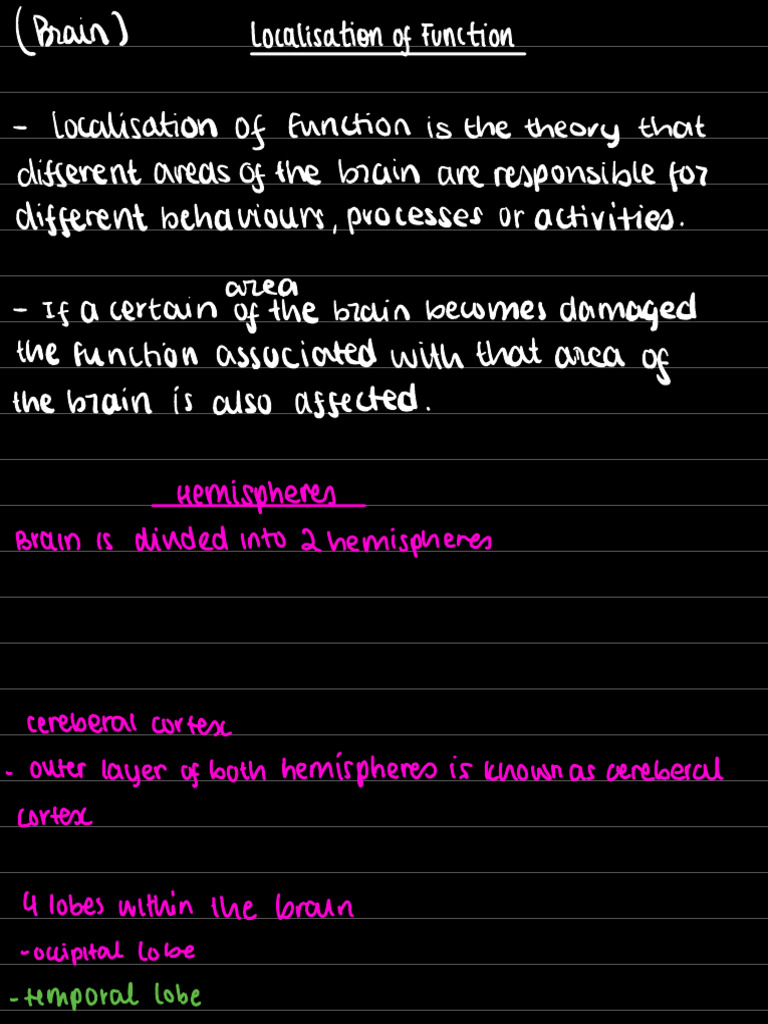 (Brain) Localisation of Function
- Localisation of function is the theory that
different areas of the brain are responsible for
different behaviours, processes or activities.
area
- If a certain of the brain becomes damaged
the function associated with that area of
the brain is also affected.
Hemispheres
Brain is divided into 2 hemispheres
cereberal cortex
- outer layer of both hemispheres is known as cereberal
cortex
4 lobes within the brain
- occipital lobe
- temporal lobe